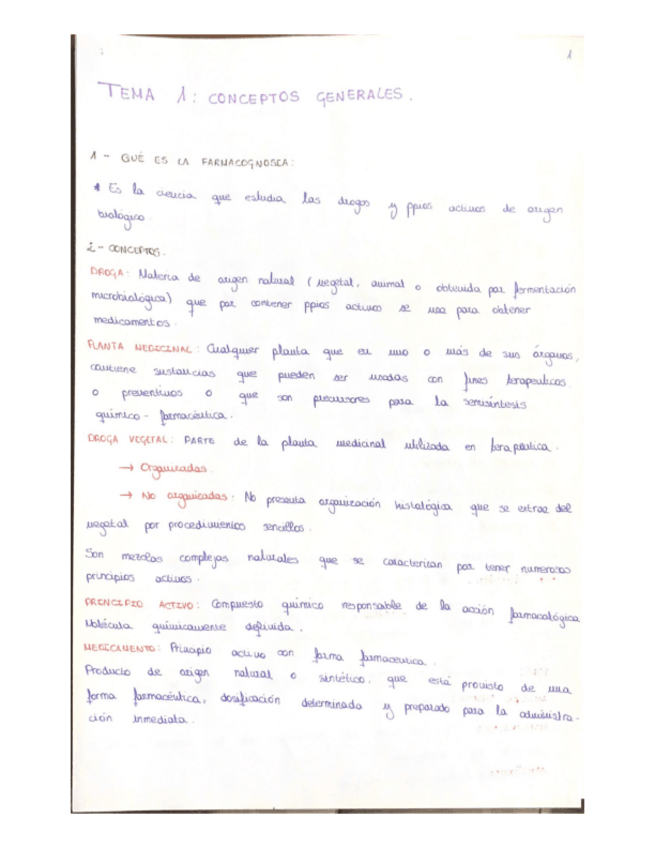 1
TEMA 1: CONCEPTOS GENERALES.
1 - QUÉ ES LA FARMACOGNOSIA:
* Es la ciencia que estudia las drogas y ppios activos de origen
biológico.
2 - CONCEPTOS.
DROGA: Materia de origen natural (vegetal, animal o obtenida por fermentación
microbiológica) que por contener ppios activos se usa para obtener
medicamentos.
PLANTA MEDICINAL: Cualquier planta que en uno o más de sus órganos,
contiene sustancias que pueden ser usadas con fines terapeuticos
o preventivos o que son precursores para la semisíntesis
químico - farmacéutica.
DROGA VEGETAL: PARTE de la planta medicinal utilizada en terapéutica.
→ Organizadas.
→ No organizadas: No presenta organización histológica que se extrae del
vegetal por procedimientos sencillos.
Son mezclas complejas naturales que se caracterizan por tener numerosos
principios activos.
PRINCIPIO ACTIVO: Compuesto químico responsable de la acción farmacológica
Molécula químicamente definida.
MEDICAMENTO: Principio activo con forma farmaceutica.
Producto de origen natural o sintético, que está provisto de una
forma farmacéutica, dosificación determinada y preparado para la administra-
ción inmediata.